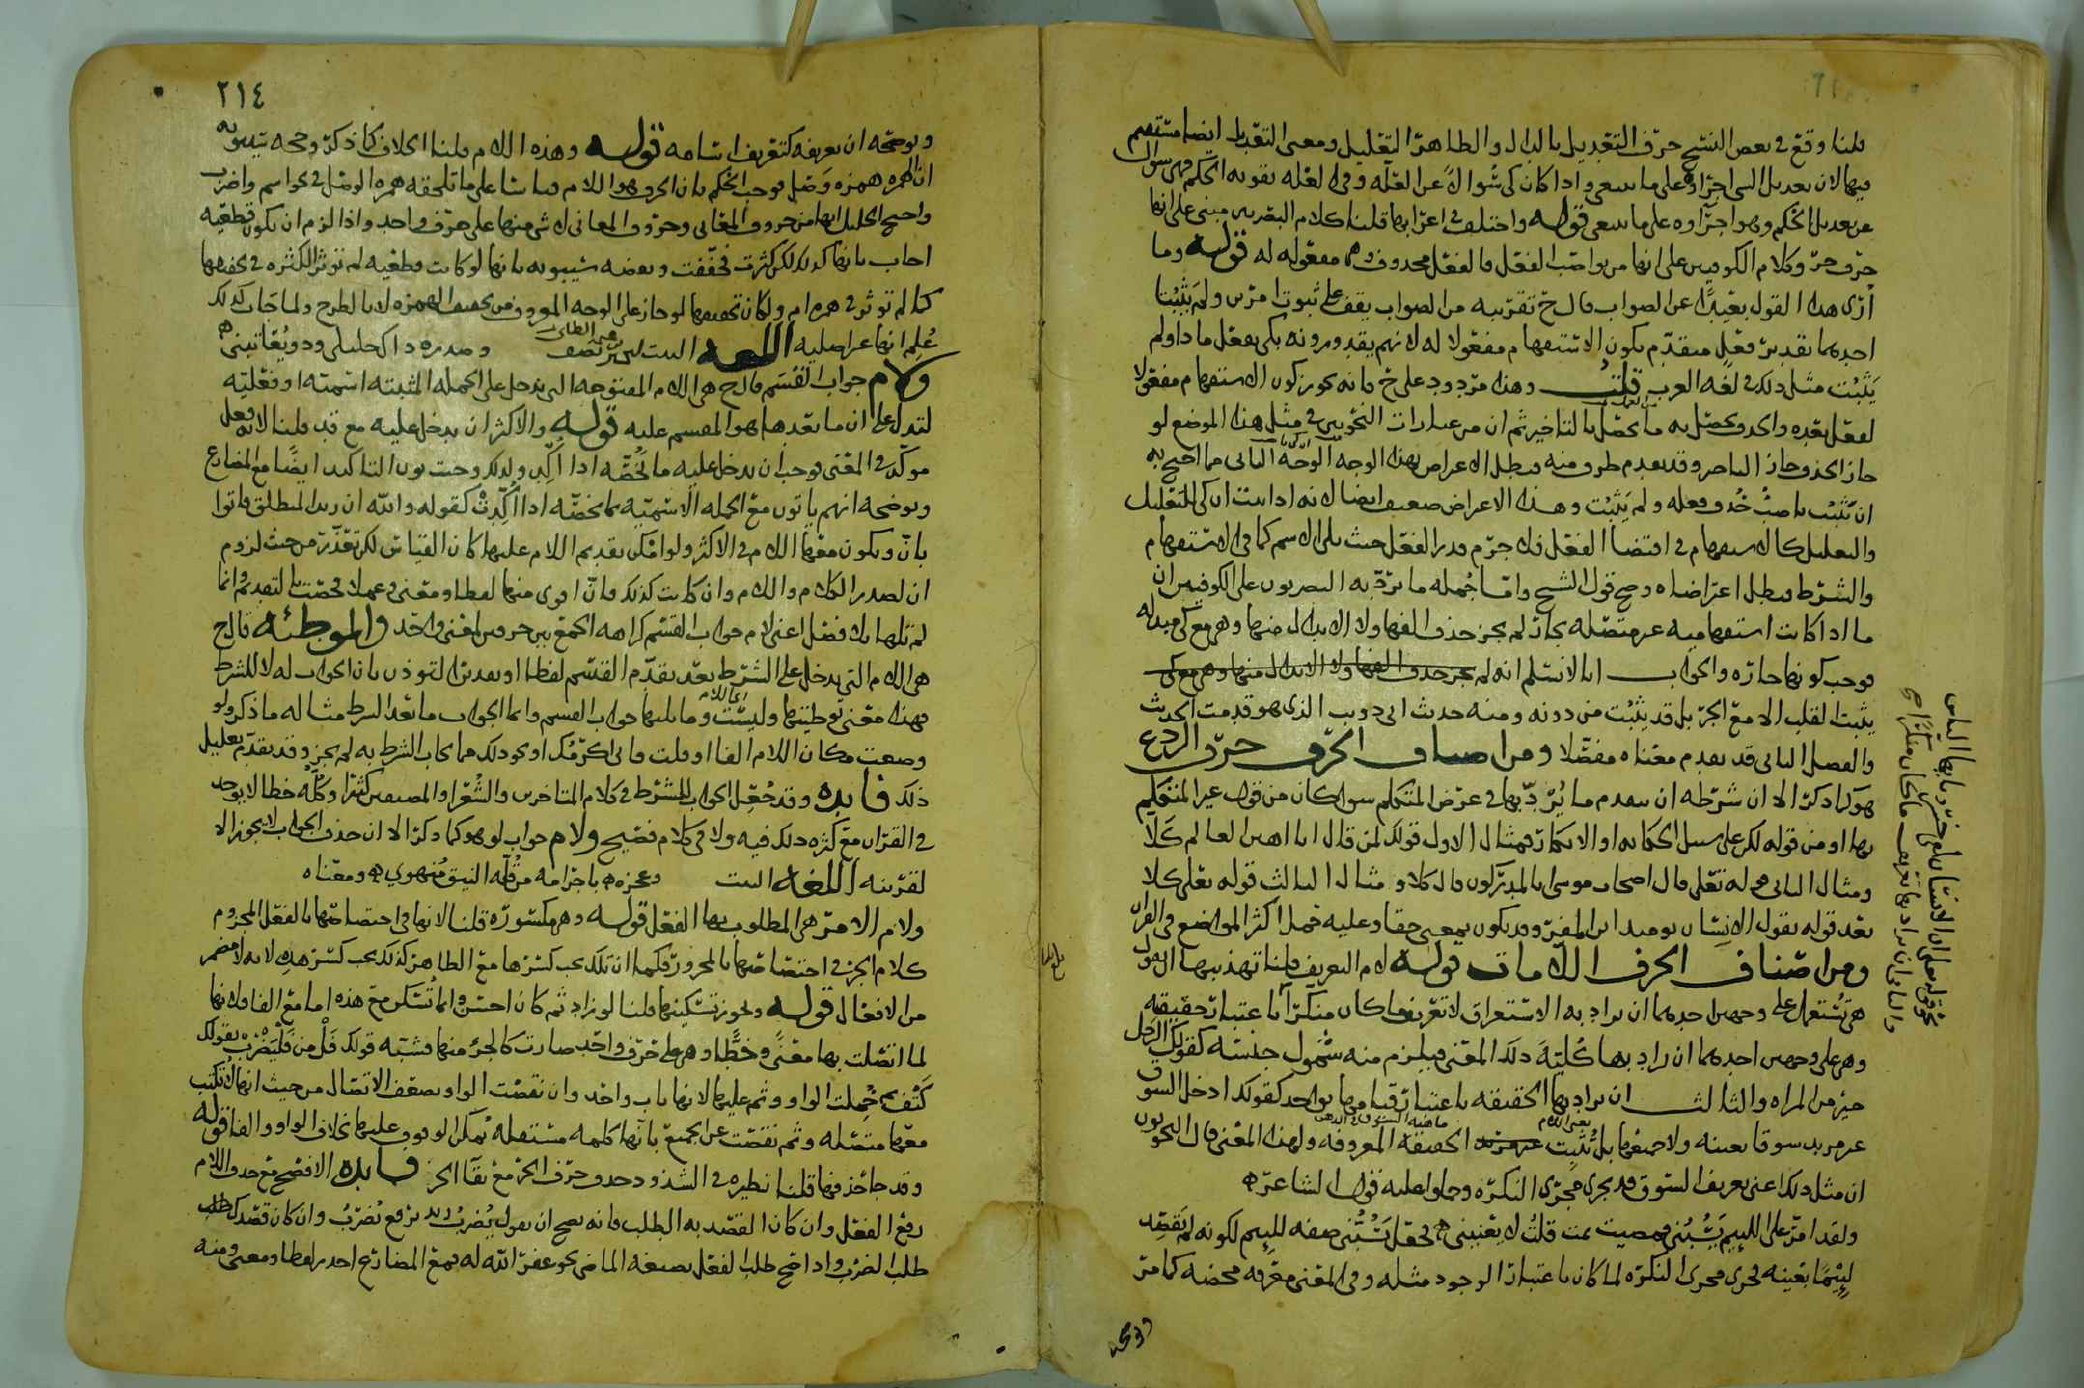 قلنا وقع في بعض النسخ حرف التعديل بالدال والظاهر التعليل ومعنى التعديل ايضا مستقيم
فيها لان تعديل الشي اجراوه على ما ينبغي واذا كان كي سوالا عن العلة وفي العلة تقويه الحكم فهي سوال
عن تعديل الحكم وهو اجراوه على ما ينبغي قوله واختلف في اعرابها قلنا كلام البصريين مبني على انها
حرف جر وكلام الكوفيين على انها من نواصب الفعل فالفعل محذوف وما مفعوله له قوله وما
ارى هذا القول بعيدا عن الصواب قال ح تقريبه من الصواب يقف على ثبوت امرين ولم يثبتا
احدهما تقدير فعل متقدم يكون الاستفهام مفعولا له لانهم يقدرونه بكي يفعل ماذا ولم
يثبت مثل ذلك في لغه العرب قلت وهذا مردود على ح فانه يجوز كون الاستفهام مفعولا
لفعل بعده
جاز الحذف جاز التاخير وقد تقدم طرف منه فبطل الاعتراض بهذا الوجه الوجه الثاني مما احتج به
ان يثبت ناصب حذف فعله ولم يثبت وهذا الاعتراض ضعيف ايضا لانه اذا ثبت ان كي للتعليل
والتعليل كالاستفهام في اقتضا الفعل فلا جرم قدر الفعل حيث يلي الاسم كما في الاستفهام
والشرط فبطل اعتراضاه وصح قول الشيخ واما جمله ما يرد به البصريون على الكوفيين ان
ما اذا كانت استفهاميه غير متصله بجار لم يجز حذف الفها ولا الابدال منها وهي مع كي مبدله
فوجب كونها جاره والجواب انا لا نسلم انه لم يجز حذف الفها ولا الابدال منها وهي مع كي
يثبت القلب الا مع الجر بل قد يثبت من دونه ومنه حديث ابي ذويب الذي هو قدمت الحديث
والفصل الثاني قد تقدم معناه مفصلا ومن اصناف الحرف حرف الردع
هو كما ذكر الا ان شرطه ان يتقدم ما يرد بها في غرض المتكلم سوا كان من قول غير المتكلم
بها او من قوله لكن على سبيل الحكايه او الانكار فمثال الاول قولك لمن قال انا اهين العالم كلا
ومثال الثاني قوله تعلى قال اصحاب موسى انا لمدركون قال كلا ومثال الثالث قوله تعلى كلا
بعد قوله يقول الانسان يومئذ اين المفر وقد يكون بمعنى حقا وعليه حمل اكثر المواضع في القران
ومن اصناف الحرف اللامات قوله لام التعريف قلنا تهذيبها ان يقول
هي تستعمل على وجهين احدهما ان يراد به الاستغراق لا تعريف ما كان منكرا باعتبار تحقيقه
وهي على وجهين احدهما ان يراد بها كلية ذلك المعنى فيلزم منه شمول جنسه كقولك الرجل
خير من المراه والثالث ان يراد بها الحقيقه باعتبار قيامها بواحد كقولك ادخل السوق
غير مريد سوقا بعينه ولا جميعها بل تثبت الحقيقه المعروفه ولهذا المعنى قال النحويون
ماهيه السوق في الذهن
ان مثل ذلك اعني تعريف السوق قد يجري مجرى النكره وحملوا عليه قول الشاعر
ولقد امر على اللئيم يسبني فمضيت ثمت قلت لا يعنيني فجعل يسبني صفه للئيم لكونه لم يقصد
لئيما بعينه فجرى مجرى النكره لما كان باعتبار الوجود مثله وفي المعنى معرفه محضه كما مر
نحو قوله تعلى ان الانسان لفي خسر يا ايها الناس
ويوضحه
٢١٤
ويوضحه ان تعريفه كتعريف اسامه قوله وهذه اللام قلنا الخلاف كما ذكر وحجه سيبويه
ان الهمزه همزه وصل فوجب الحكم بان الحرف هو اللام قياسا على ما تلحقه همزه الوصل في نحو اسم واضرب
واحتج الخليل انها من حروف المعاني وحروف المعاني لا شي منها على حرف واحد واذا لزم ان تكون قطعيه
اجاب بانها كذلك لكن كثرت فخففت ويعضد سيبويه بانها لو كانت قطعيه لم توثر الكثره في تخفيفها
كما لم توثر في همزه ام ولكان تخفيفها لو جاز على الوجه المعروف من تخفيف الهمزه لا بالطرح ولما جات كذلك
علم انها غير اصليه اللغه البيت وصدره ذاك خليلي وذو يعاتبني
ولام جواب القسم قال ح هي اللام المفتوحه التي تدخل على الجمله المثبته اسميه او فعليه
لتدل على ان ما بعدها هو المقسم عليه قوله والاكثر ان تدخل عليه مع قد قلنا لانه فعل
موكد في المعنى فوجب ان تدخل عليه ما تخصه اذا اكد ولذلك وجبت نون التاكيد ايضا مع المضارع
ويوضحه انهم ياتون مع الجمله الاسميه بما يخصه اذا اكدت كقوله والله ان زيدا لمنطلق فاتوا
بان ويكون معها اللام في الاكثر ولو امكن تقديم اللام عليها كان القياس لكن تعذر من حيث لزوم
ان لصدر الكلام واللام وان كانت كذلك فان اقوى منها لفظا ومعنى وعملا فخصت بالتقديم وانما
لم تلها بلا فصل اعني لام جواب القسم كراهه الجمع بين حرفين لمعنى واحد والموطئه قال ح
هي اللام التي تدخل على الشرط بعد تقدم القسم لفظا او تقديرا لتوذن بان الجواب له لا للشرط
فهذا معنى توطيتها وليست وما يليها جواب القسم وانما الجواب ما بعد الشرط مثاله ما ذكر ولو
وضعت مكان اللام الفا او قلت فاني اكرمك او نحو ذلك مما يجاب الشرط به لم يجز وقد تقدم تعليل
ذلك فايده وقد جعل الجواب للشرط في كلام المتاخرين والشعرا والمصنفين كثيرا وكله خطا لا يوجد
في القران مع كثره ذلك فيه ولا في كلام فصيح ولام جواب لو هو كما ذكر الا ان حذف الجواب لا يجوز الا
لقرينه اللغه البيت وعجزه باجرامه من قلة النيق منهوي ومعناه
ولام الامر هي المطلوب بها الفعل قوله وهي مكسوره قلنا لانها في اختصاصها بالفعل المجزوم
كلام الجر في اختصاصها بالمجرور فكما ان تلك يجب كسرها مع الظاهر كذلك يجب كسر هذه لانه لا مضمر
من الافعال قوله ويجوز تسكينها قلنا لو زاد ثم كان احسن وانما تسكن مع هذه اما مع الفا فلانها
لما اتصلت بها معنى وخطا وهي على حرف واحد صارت كالجزء منها فشبه قولك فل من فليضرب بقولك
كتف ثم حملت الواو وثم عليها لانها باب واحد وان نقصت الواو بضعف الاتصال من حيث انها لا تكتب
معها متصله وثم نقصت عن الجميع بانها كلمه مستقله يمكن الوقوف عليها بخلاف الواو والفا قوله
وقد جا حذفها قلنا نظيره في الشذوذ حذف حرف الجر مع بقا الجر فايده الافصح مع حذف اللام
رفع الفعل وان كان القصد به الطلب فانه يصح ان تقول يضرب زيد برفع يضرب وان كان قصدك طلب
طلب الضرب واذا صح طلب الفعل بصيغه الماضي نحو غفر الله له فمع المضارع اجدر لفظا ومعنى ومنه